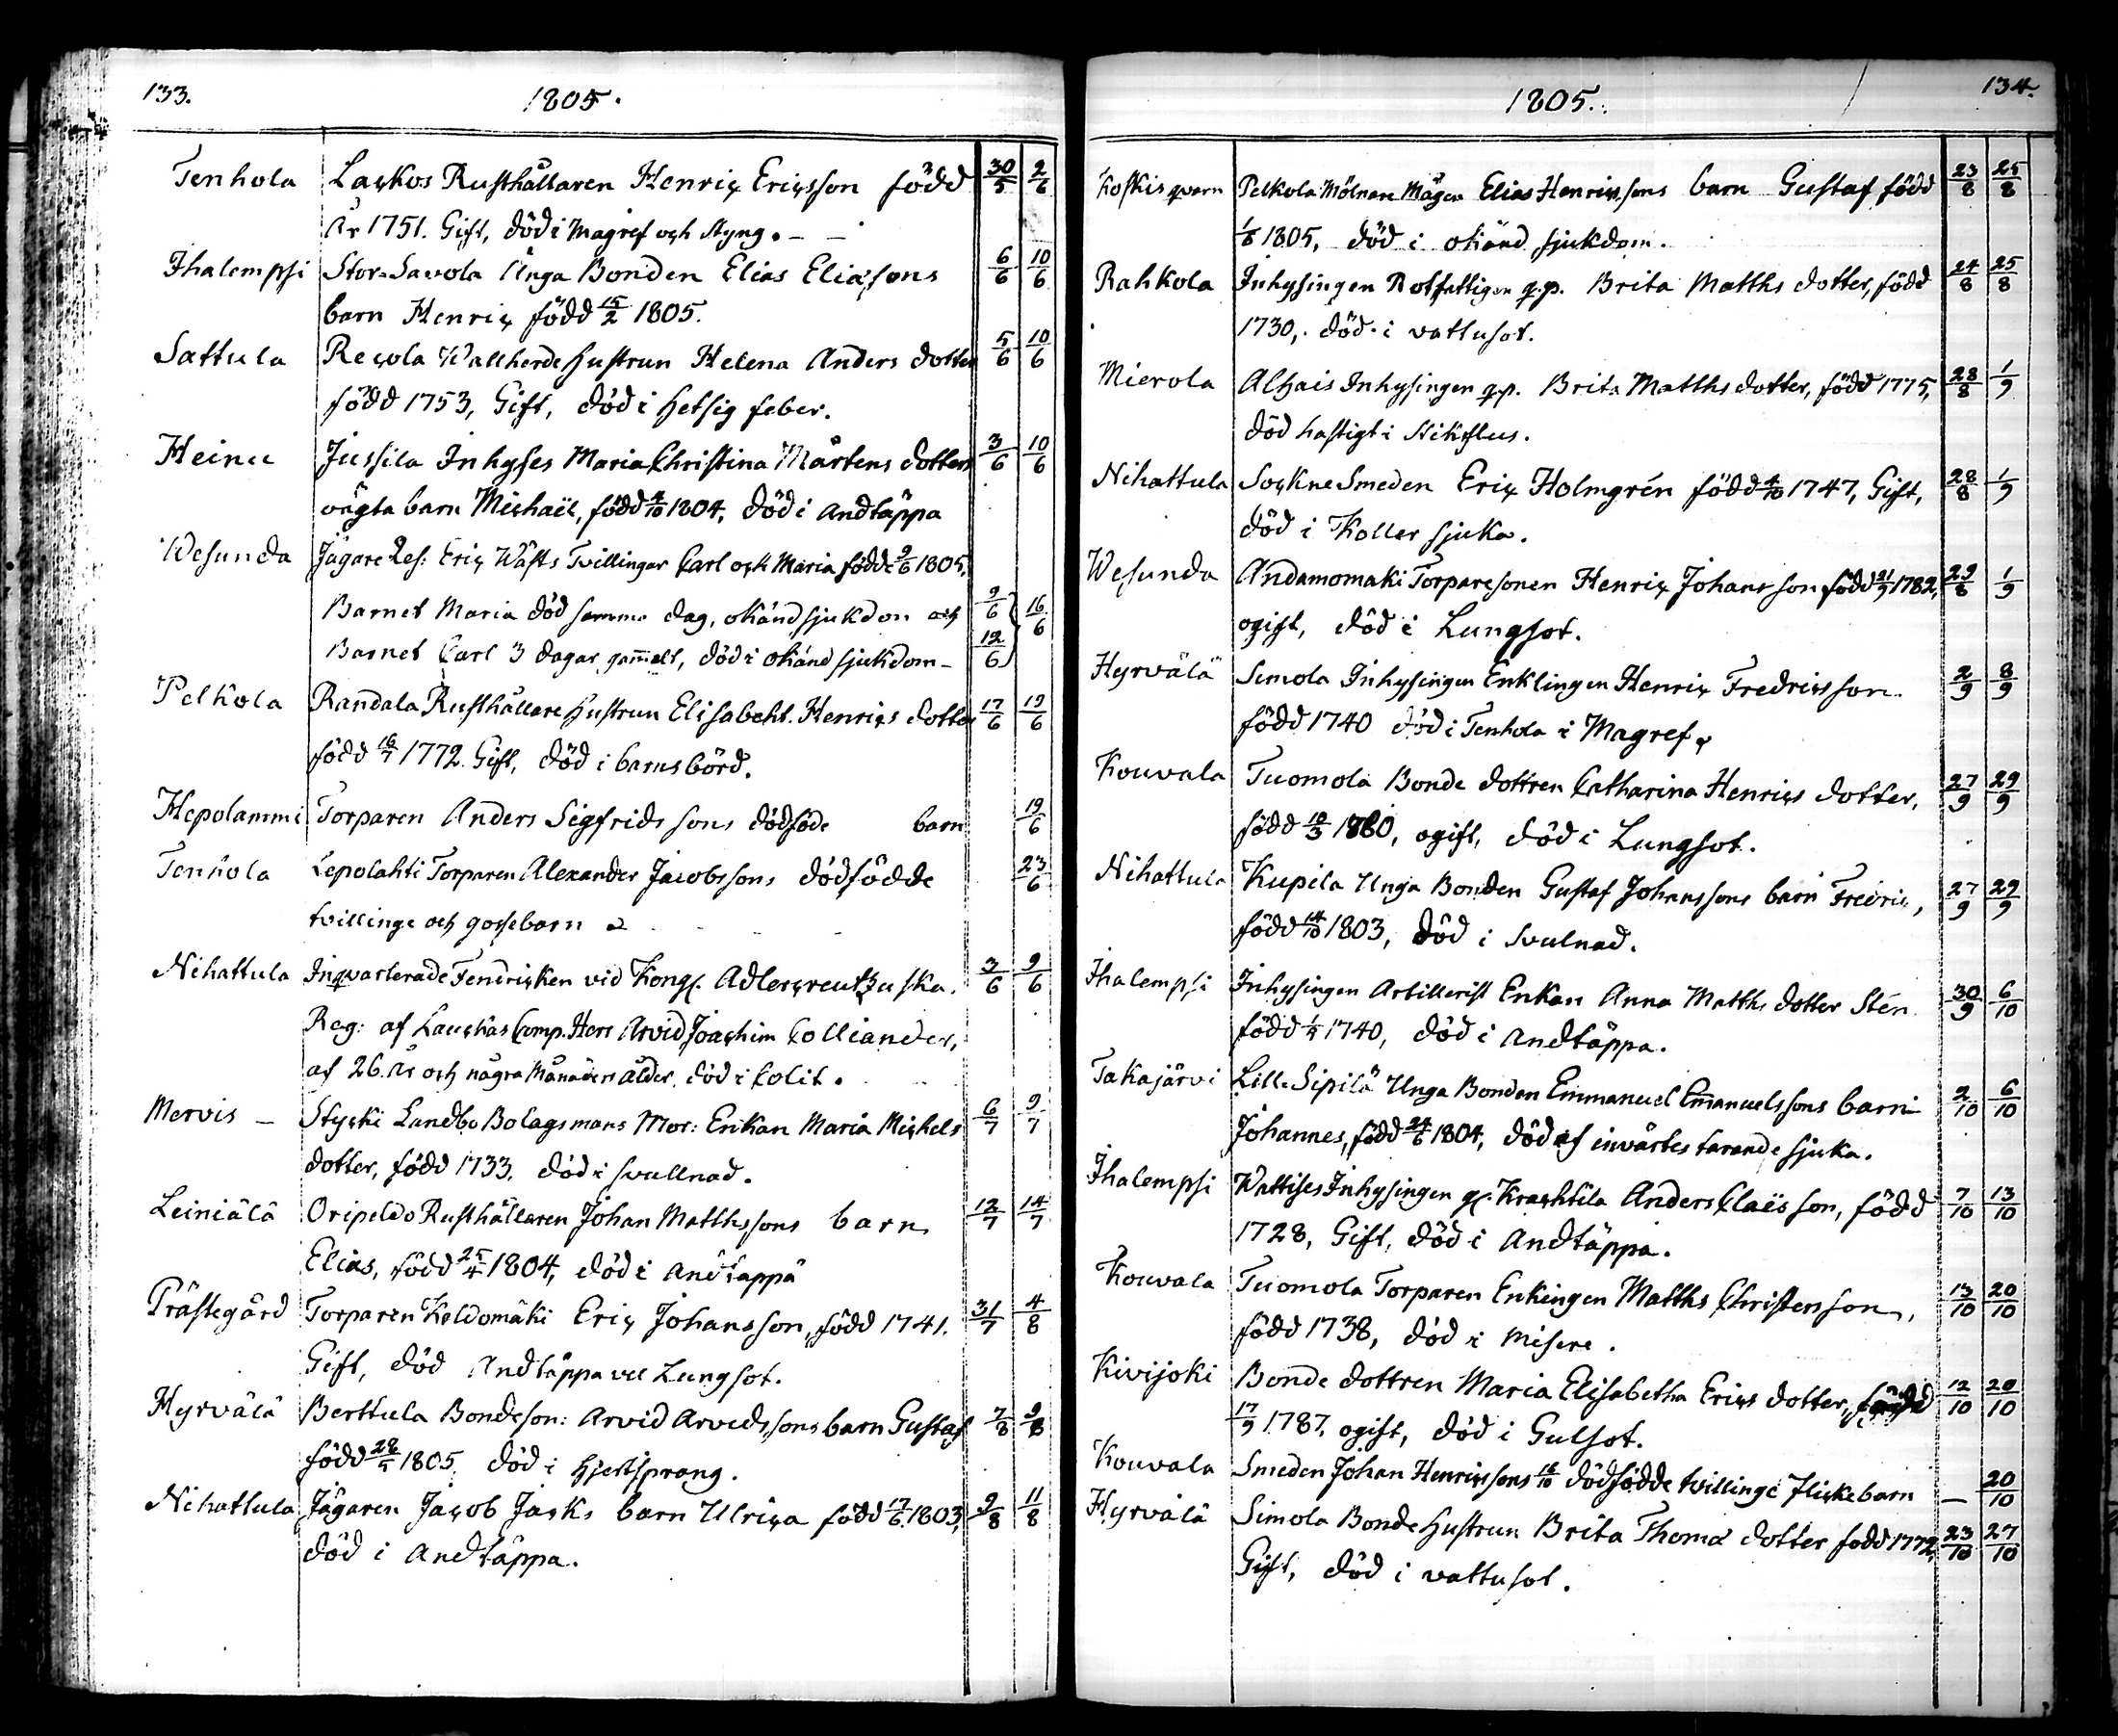 133.
1805.
Tenhola Lackos Rusthållaren Henric Ericsson född 30/5 2/6
År 1751. Gift, död i Magref och styng. – –
Ihalempsi Stor-Savola Unga Bonden Elias Eliæsons 6/6 10/6
barn Henric född 15/2 1805.
Sattula Recola Wallherde hustrun Helena Anders dotter 5/6 10/6
född 1753, Gift, död i hetsig feber.
Heinu Jussila Inhyses Maria Christina Mårtens dotters 3/6 10/6
oägta barn Michaël, född 4/10 1804, död i andtäppa
Wesunda Jägare Res: Eric Wäfts Tvillingar Carl och Maria födde 9/6 1805.
Barnet Maria död samma dag, okänd sjukdom och 9/6 16/6
Barnet Carl 3 dagar gam̄alt, död i okänd sjukdom – 12/6
Pelkola Randala Rusthållare hustrun Elisabeht. Henrics dotter 17/6 19/6
född 16/7 1772. Gift, död i barnsbörd.
Hepolammi Torparen Anders Sigfrids sons dödföde barn 19/6
Tenhola Lepolahti Torparen Alexander Jacobssons dödfödde 23/6
tvillinge och gossebarn 2
Nihattula Inqvarterade Fendricken vid Kongl. Adlercreutzuska. 3/6 9/6
Reg: af Lauckas Comp. Herr Arvid Joachim Colliander,
af 26. År och några Månaders ålder, död i Colik.
Mervis – Stycki Landbo Bolagsmans Mor: Enkan Maria Michels 6/7 9/7
dotter, född 1733, död i svullnad.
Leiniälä Oripeldo Rusthållaren Johan Matthssons barn 12/7 14/7
Elias, född 25/4 1804, död i andtäppa
Prästegård Torparen Keldomäki Eric Johansson, född 1741. 31/7 4/8
Gift, död Andtäppa vel Lungsot.
Hyrvälä Berttula Bondeson: Arvid Arvidssons barn Gustaf 7/8 9/8
född 28/5 1805. död i hjertsprang.
Nihattula Jägaren Jacob Jasks barn Ulrica född 17/6 1803, 9/8 11/8
död i Andtäppa.
134.
1805.
Koskis qvarn Pelkola Mölnare Mågen Elias Henricssons barn Gustaf född 23/8 25/8
1/8 1805, död i okänd sjukdom.
Rahkola Inhysingen Rotfattigen q.p. Brita Matths dotter, född 24/8 25/8
1730, död i vattusot.
Mierola Alhais Inhysingen q.p. Brita Matths dotter, född 1775, 28/8 1/9
död hastigt i Stikflus.
Nihattula Sockne Smeden Eric Holmgrén född 4/10 1747, Gift, 28/8 1/9
död i Koller sjuka.
Wesunda Andamomaki Torparesonen Henric Johansson född 21/9 1782, 29/8 1/9
ogift, död i Lungsot.
Hyrvälä Simola Inhysingen Enklingen Henric Fredricsson. 2/9 8/9
född 1740 död i Tenhola i Magref.
Kouvala Tuomola Bonde dottren Catharina Henrics dotter, 27/9 29/9
född 10/3 1780, ogift, död i Lungsot.
Nihattula Kupila Unga Bonden Gustaf Johanssons barn Fredric, 27/9 29/9
född 14/10 1803, död i svulnad.
Ihalempsi Inhysingen Artillerist Enkan Anna Matths dotter Stén 30/9 6/10
född 1/4 1740, död i Andtäppa.
Takajärvi Lill-Sipilä Unga Bonden Emmanuel Em̄anuelssons barn 2/10 6/10
Johannes, född 24/6 1804, död af invärtes tarande sjuka.
Ihalempsi Wattises Inhysingen gl. Krachtila Anders Claësson, född 7/10 13/10
1728, Gift, död i Andtäppa.
Kouvala Tuomola Torparen Enkingen Matths Christersson, 13/10 20/10
född 1738, död i Misere.
Kivijoki Bonde dottren Maria Elisabetha Erics dotter, född 12/10 20/10
17/9 1787, ogift, död i Gulsot.
Kouvala Smeden Johan Henricssons 16/10 dödfödde tvillinge flickebarn – 20/10
Hyrvälä Simola Bonde hustrun Brita Thomæ dotter född 1772, 23/10 27/10
Gift, död i vattusot.